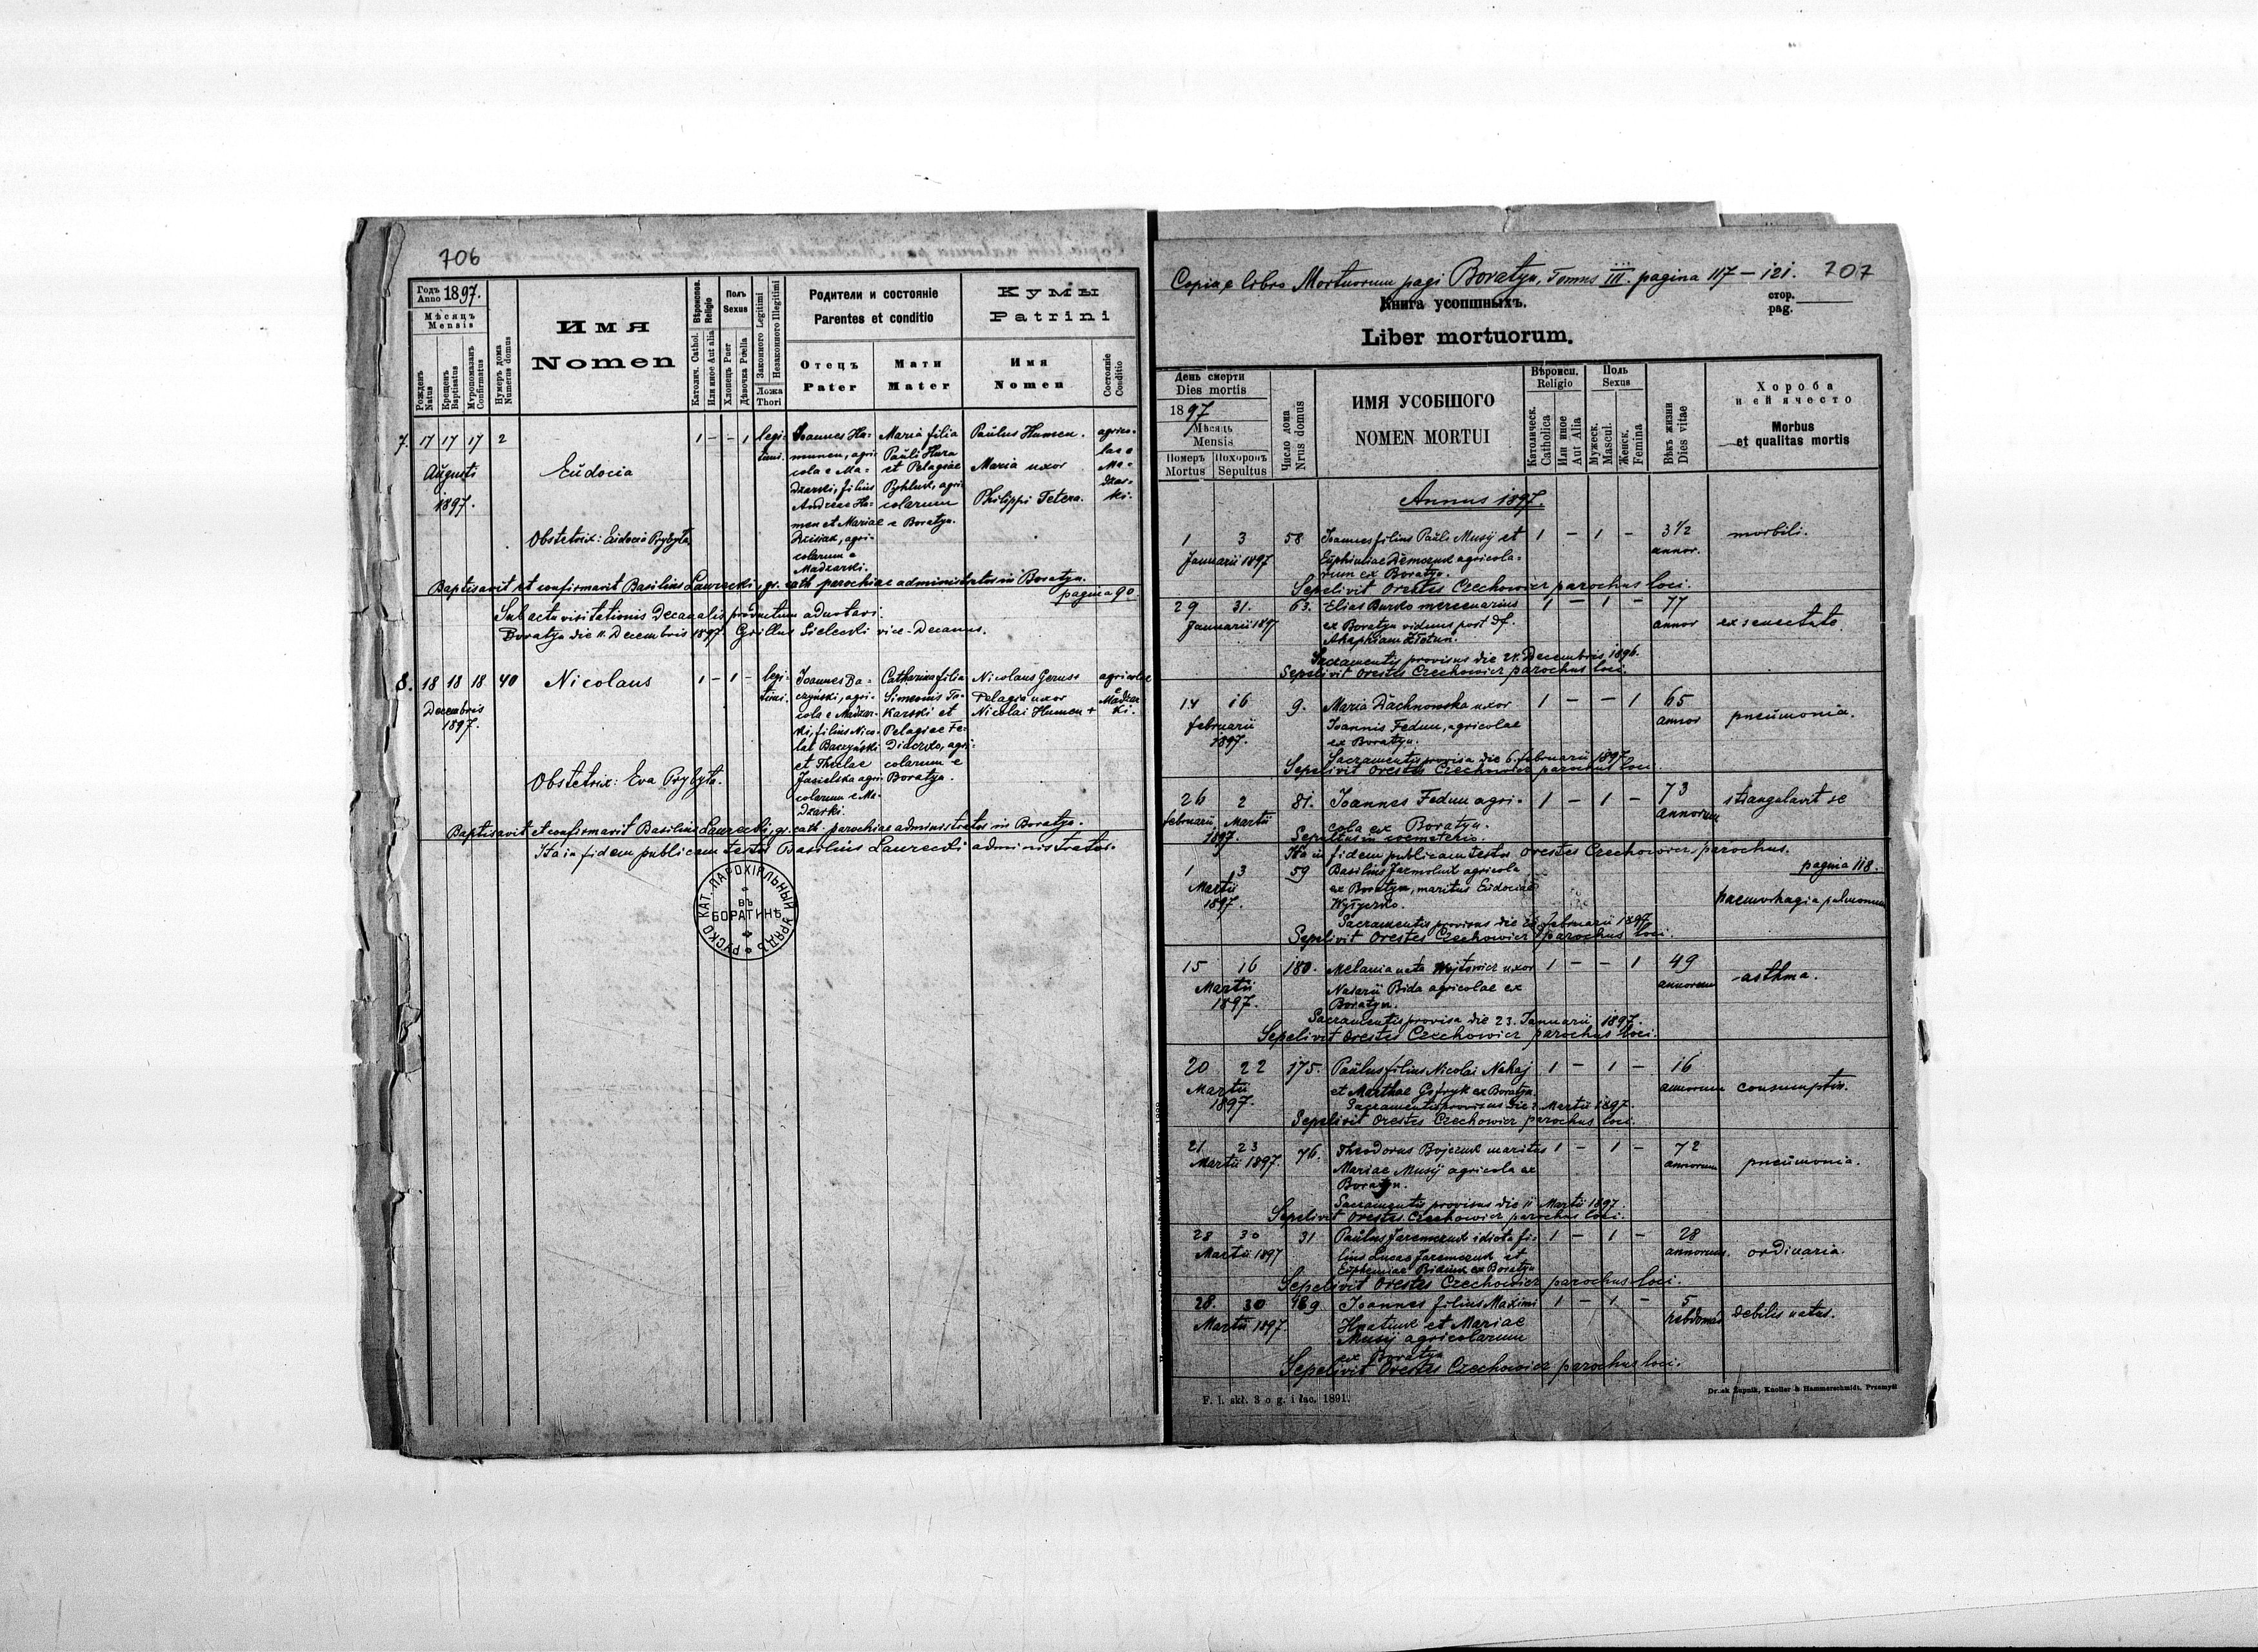 706
Годъ
Anno 1897.
Мѣсяць
Mensis
Рожденъ
Natus
Крещенъ
Baptisatus
Муропомазанъ
Confirmatus
Нумеръ дома
Numerus domus
Имя
Nomen
Вѣроиспов.
Religio
Католич. Cathol.
Или иное Aut alia
Полъ
Sexus
Хлопець Puer
Дѣвочка Puella
Законного Legitimi
Незаконного Illegitimi
Ложа
Thori
Родители и состоянie
Parentes et conditio
Отець
Pater
Мати
Mater
Кумы
Patrini
Имя
Nomen
Состоянie
Conditio
7. 17 17 17 2
Augusti
1897.
Eudocia
1 – – 1
legi-
timi.
Joannes Hu-
menen, agri-
cola e Ma-
dzarski, filius
Andreae Hu-
men et Mariae
agri-
colarum e
Madzarski.
Maria filia
Pauli Hara
et Pelagiae
agri-
colarum
e Boratyn.
Paulus Humen.
Maria uxor
Philippi Tetera.
agrico-
lae e
Ma-
dzar-
ki.
Obstetrix: Eudocia Prybyła
Baptisavit et confirmavit Basilius Laurecki, gr. cath. parochiae administrator in Boratyn.
pagina 90.
Sub actu visitationis Decanalis productum adnotavi.
Boratyn die 11. Decembris 1897. Cyrillus Sielecki vice-Decanus.
8. 18 18 18 40
Decembris
1897.
Nicolaus
1 – 1 –
legi-
timi.
Joannes Ba-
czyński, agri-
cola e Madzar-
ki, filius Nico-
lai Baczyński
et Theclae
Jasielska agri-
colarum e Ma-
dzarki.
Catharina filia
Simeonis To-
karski et
Pelagiae Fe-
agri-
colarum e
Boratyn.
Nicolaus Geruss
Pelagia uxor
Nicolai Humen +
agricolae
e Madzar
ki.
Obstetrix: Eva Prybyła.
Baptisavit et confirmavit Basilius Laurecki, gr. cath. parochiae administrator in Boratyn.
Ita in fidem publicam testor Basilius Laurecki administrator.
РУСКО КАТ. ПАРОХІЯЛЬНЫЙ УРЯДЪ
ВЪ
БОРАТИНѢ
Copia e libro Mortuorum pagi Boratyn, Tomus III. pagina 117 – 121. 707
Книга усопшныхъ.
стор.
pag.
Liber mortuorum.
День смерти
Dies mortis
1897
Мѣсяць
Mensis
Померъ
Mortus
Похоронъ
Sepultus
Число дома
Nrus domus
ИМЯ УСОБШОГО
NOMEN MORTUI
Вѣроисп.
Religio
Католическ.
Catholica
Или иное
Aut Alia
Полъ
Sexus
Мужеск.
Mascul.
Женск.
Femina
Вѣкъ жизни
Dies vitae
Хороба
и ей ячесто
Morbus
et qualitas mortis
Annus 1897.
1 3 58
Januarii 1897
Joannes filius Pauli Musij et
Euphimiae Demczuk agricola-
rum ex Boratyn.
1 – 1 –
3 1/2
annor.
morbili.
Sepelivit Orestes Czechowicz parochus loci.
29 31. 63.
Januarii 1897
Elias Burko mercenarius
ex Boratyn viduus post df.
1 – 1 –
77
annor
ex senectute
Sacramentis provisus die 21. Decembris 1896.
Sepelivit Orestes Czechowicz parochus loci.
14 16 9.
februarii
1897.
Maria Dachnowska uxor
Joannis Fedun, agricolae
ex Boratyn.
1 – – 1
65
annor
pneumonia.
Sacramentis provisa die 6. februarii 1897.
Sepelivit Orestes Czechowicz parochus loci.
26 2 81.
februarii Martii
1897.
Joannes Fedun agri-
cola ex Boratyn.
1 – 1 –
73
annorum
strangulavit se
Sepultus in coemeterio.
Ita in fidem publicam testor Orestes Czechowicz, parochus.
pagina 118.
1 3 59
Martii
1897.
Basilius Jarmoluk agricola
ex Boratyn, maritus Eudociae
haemorhagia pulmonum
Sacramentis provisus die 28 februarii 1897
Sepelivit Orestes Czechowicz parochus loci.
15 16 180.
Martii
1897.
Melania nata Wojtowicz uxor
Nasarii Bida agricolae ex
Boratyn.
1 – – 1
49
annorum
asthma.
Sacramentis provisa die 23. Januarii 1897.
Sepelivit Orestes Czechowicz parochus loci.
20 22 175.
Martii
1897.
Paulus filius Nicolai Nahaj
et Marthae ex Boratyn.
1 – 1 –
16
annorum
consumptio.
Sacramentis provisus die Martii 1897.
Sepelivit Orestes Czechowicz parochus loci.
21 23 76.
Martii 1897.
Theodorus Bojczuk maritus
Mariae Musij agricola ex
Boratyn.
1 – 1 –
72
annorum
pneumonia.
Sacramentis provisus die 11 Martii 1897.
Sepelivit Orestes Czechowicz parochus loci.
28 30 31
Martii 1897
Paulus Jaremczuk idiota fi-
lius Lucae Jaremczuk et
Euphemiae ex Boratyn
1 – 1 –
28
annorum.
ordinaria.
Sepelivit Orestes Czechowicz parochus loci.
28. 30
Martii 1897.
Joannes filius Maximi
Hnatiuk et Mariae
Musij agricolarum
ex Boratyn
1 – 1 –
5
hebdomad
debilis natus.
Sepelivit Orestes Czechowicz parochus loci.
F. l. skł. 3 o g. i łac. 1891.
Druk Żupnik, Knoller & Hammerschmidt, Przemyśl